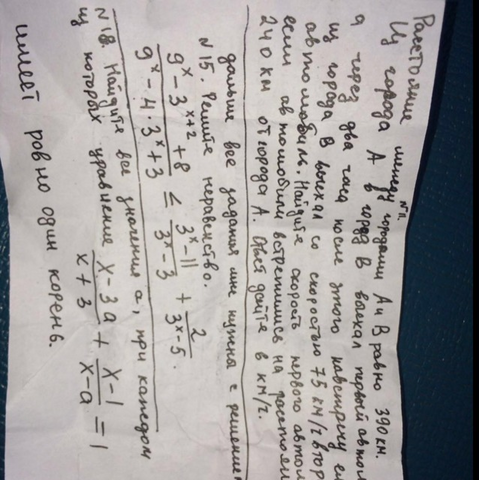 Растояние между городами А и В равно 390км.
№11
Из города А в город В выехал первый автом
а через два часа после этого навстречу ему
из города В выехал со скоростью 75 км/ч втор
автомобиль. Найдите скорость первого автом
если автомобили встретились на расстоян
240 км от города А. Ответ дайте в км/ч.
дальше все задания мне нужны с решением
№15. Решите неравенство.
9^x - 3^{x+2} + 8 / 9^x - 4·3^x + 3 ≤ 3^x - 11 / 3^x - 3 + 2 / 3^x - 5.
№18. Найдите все значения а, при каждом
из которых уравнение x - 3a / x + 3 + x - 1 / x - a = 1
имеет ровно один корень.